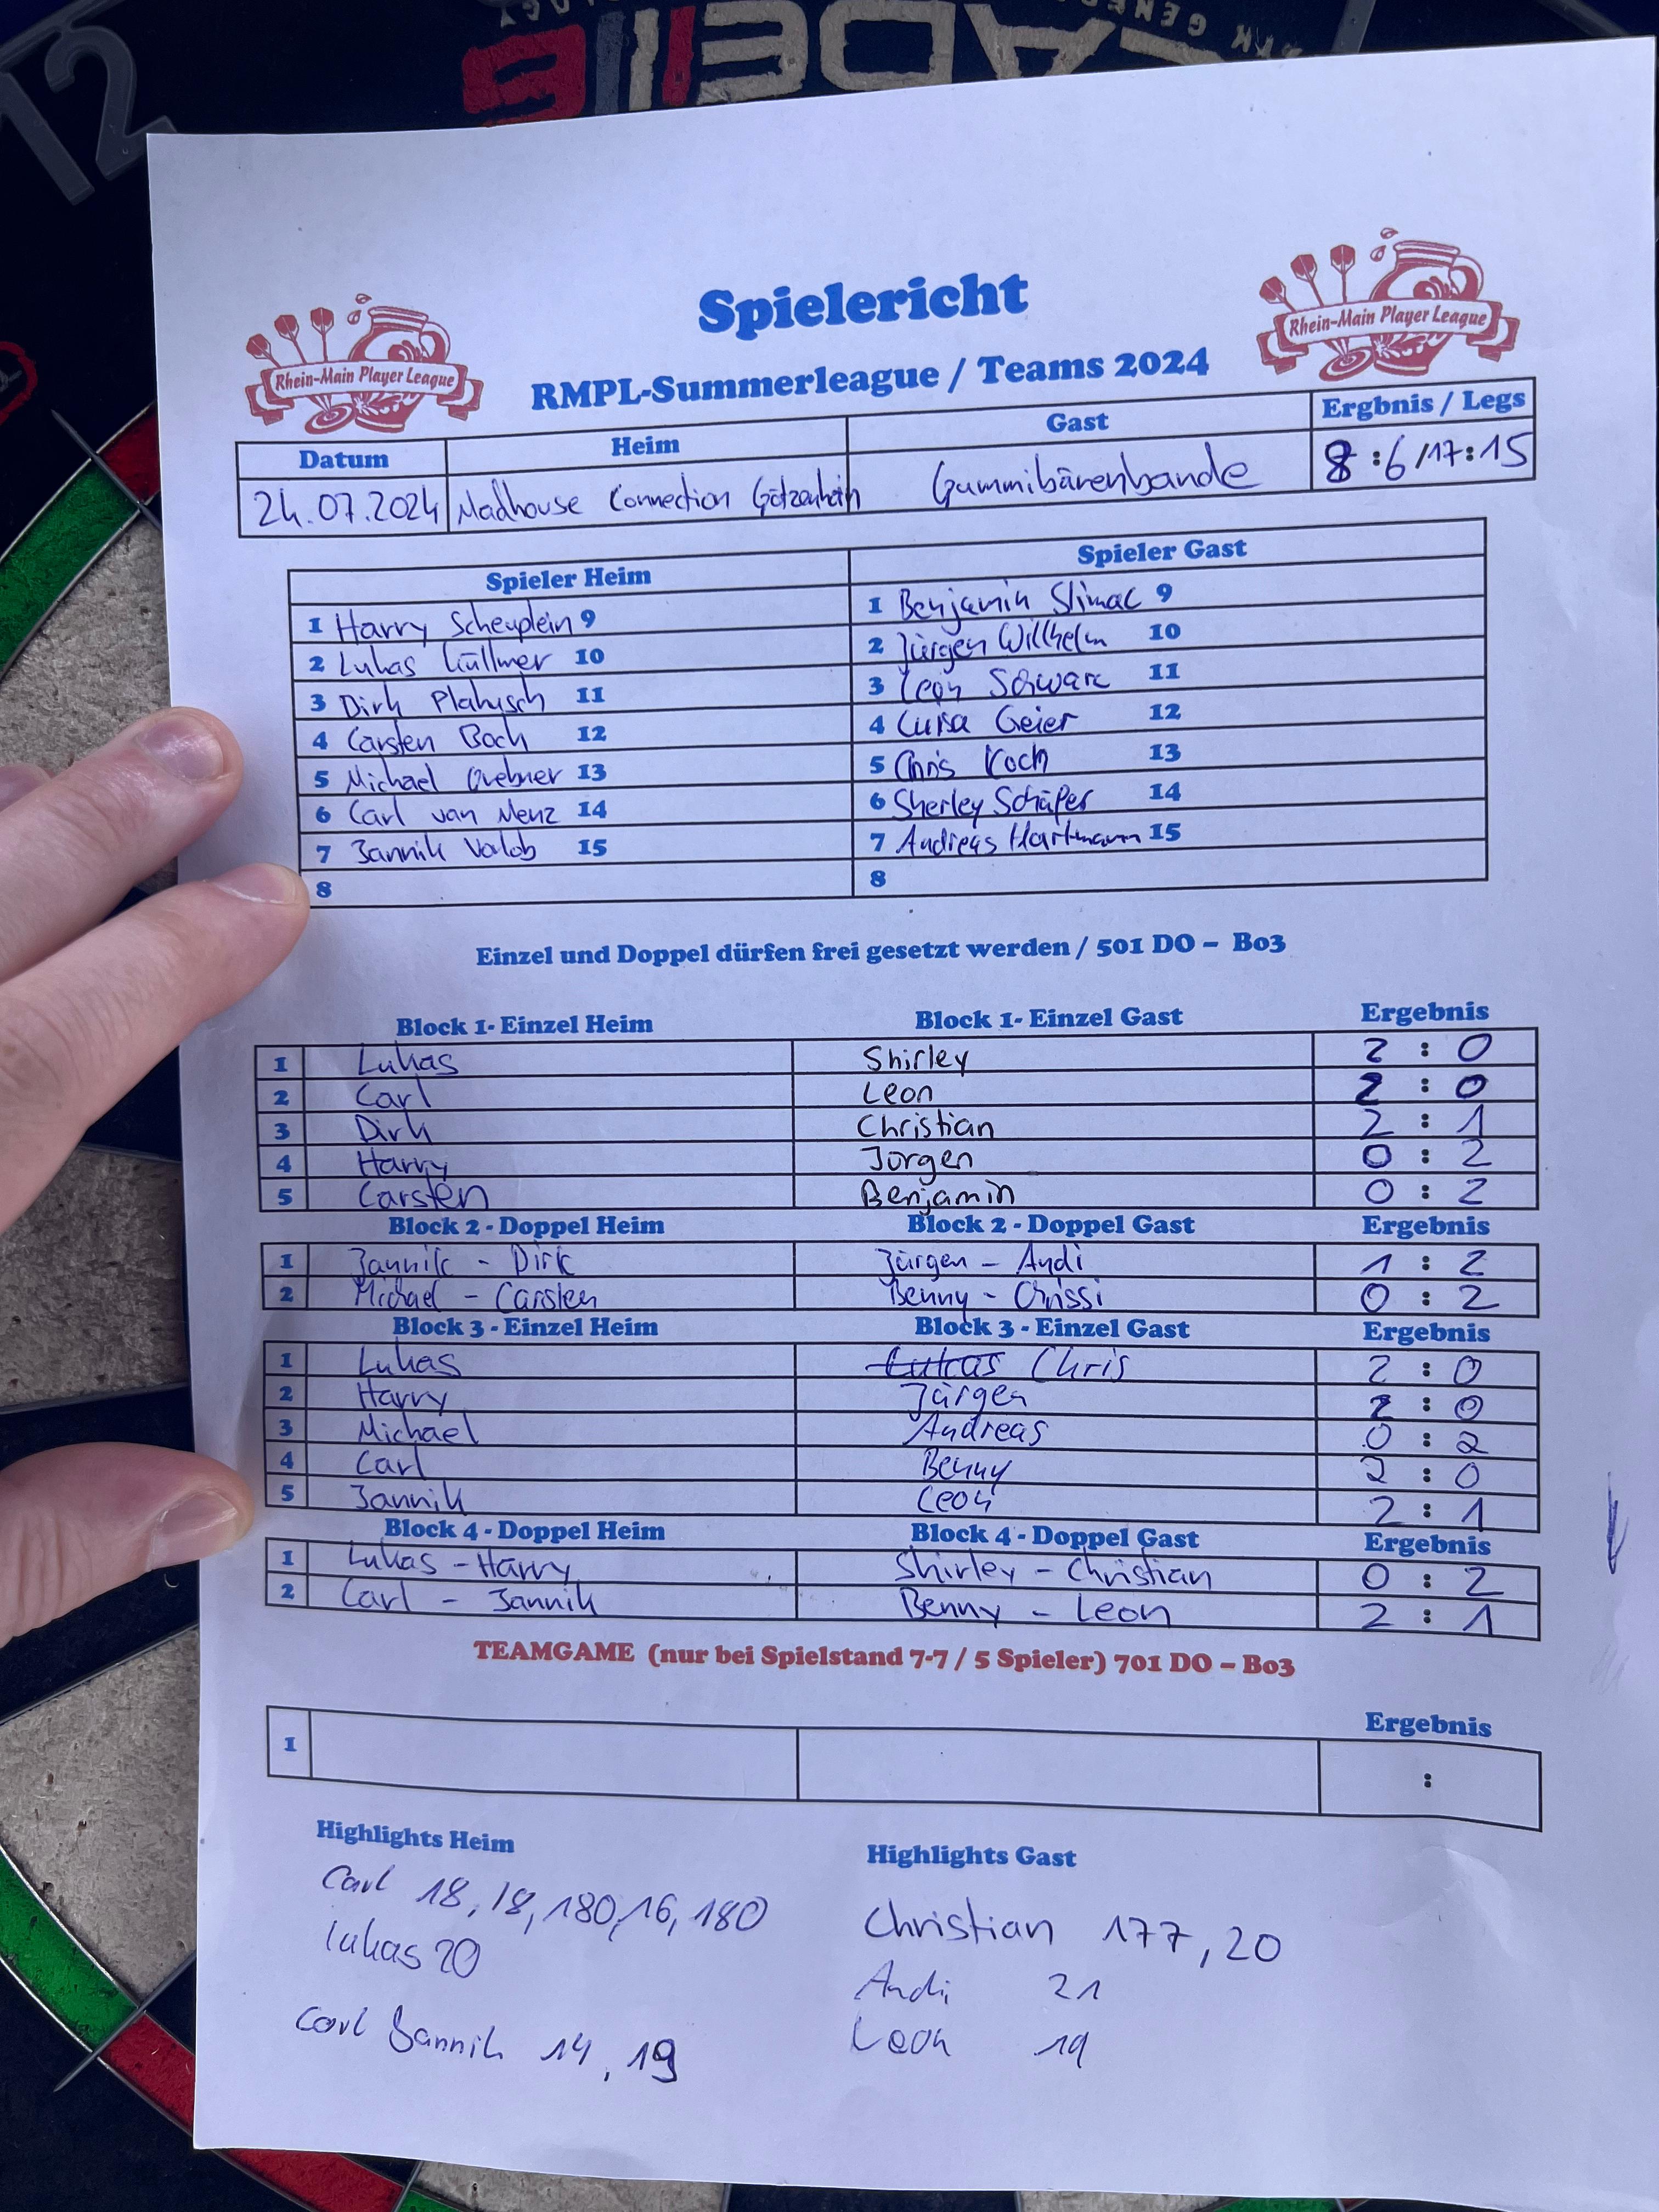 12
Spielericht
RMPL-Summerleague / Teams 2024
Rhein-Main Player League
Rhein-Main Player League
Datum Heim Gast Ergbnis / Legs
24.07.2024 Madhouse Connection Götzenhain Gummibärenbande 8:6/17:15
Spieler Heim Spieler Gast
1 Harry Scheuplein 9 1 Benjamin Slimac 9
2 Lukas Küllmer 10 2 Jürgen Wilhelm 10
3 Dirk 11 3 Leon Schwarz 11
4 Carsten Bach 12 4 Luisa Geier 12
5 Michael 13 5 Chris Koch 13
6 Carl van Menz 14 6 Sherley Schäfer 14
7 Jannik 15 7 Andreas Hartmann 15
8 8
Einzel und Doppel dürfen frei gesetzt werden / 501 DO – Bo3
Block 1- Einzel Heim Block 1- Einzel Gast Ergebnis
1 Lukas Shirley 2 : 0
2 Carl Leon 2 : 0
3 Dirk Christian 2 : 1
4 Harry Jürgen 0 : 2
5 Carsten Benjamin 0 : 2
Block 2 - Doppel Heim Block 2 - Doppel Gast Ergebnis
1 Jannik - Dirk Jürgen - Andi 1 : 2
2 Michael - Carsten Benny - Chrissi 0 : 2
Block 3 - Einzel Heim Block 3 - Einzel Gast Ergebnis
1 Lukas Lukas Chris 2 : 0
2 Harry Jürgen 2 : 0
3 Michael Andreas 0 : 2
4 Carl Benny 2 : 0
5 Jannik Leon 2 : 1
Block 4 - Doppel Heim Block 4 - Doppel Gast Ergebnis
1 Lukas - Harry Shirley - Christian 0 : 2
2 Carl - Jannik Benny - Leon 2 : 1
TEAMGAME (nur bei Spielstand 7-7 / 5 Spieler) 701 DO – Bo3
Ergebnis
1 :
Highlights Heim Highlights Gast
Carl 18, 18, 180, 16, 180 Christian 177, 20
Lukas 20 Andi 21
Carl Jannik 14, 19 Leon 19